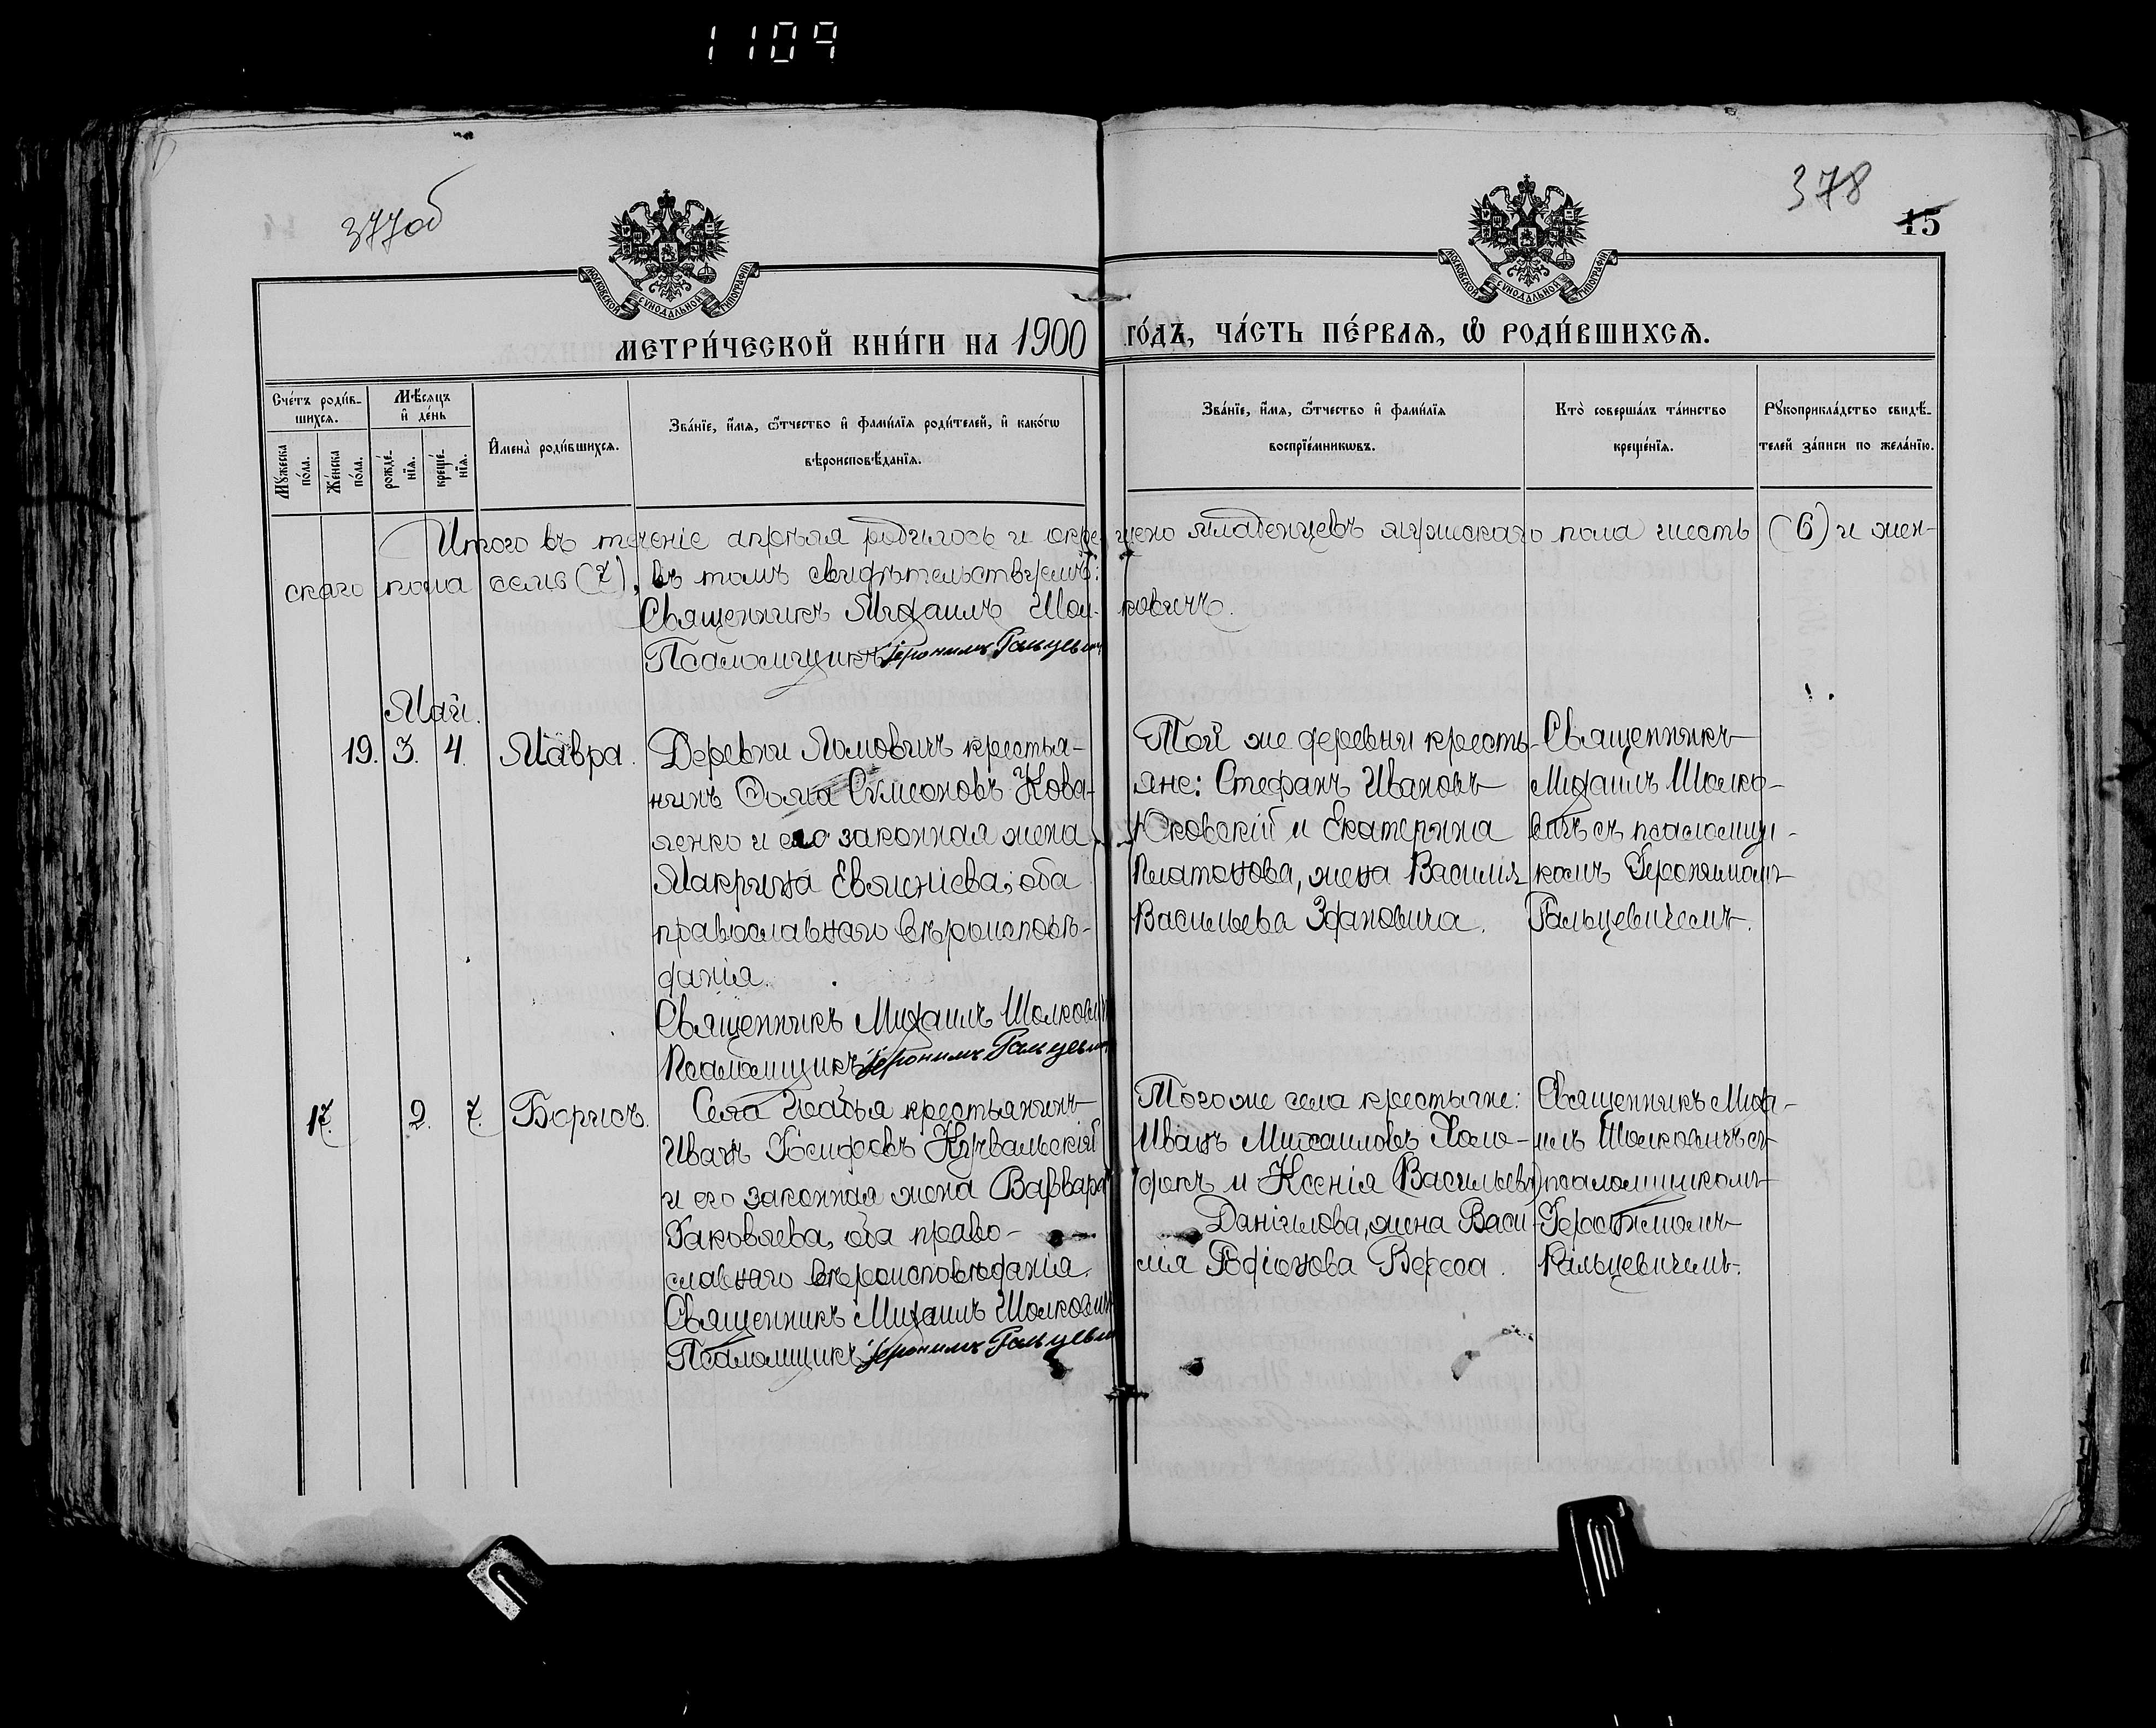 1109
377об
378
15
МОСКОВСКОЙ СѴНОДАЛЬНОЙ ТИПОГРАФІИ
МОСКОВСКОЙ СѴНОДАЛЬНОЙ ТИПОГРАФІИ
МЕТРИ́ЧЕСКОЙ КНИ́ГИ НА 1900 ГО́ДЪ, ЧА́СТЬ ПЕ́РВАЯ, Ѽ РОДИ́ВШИХСѦ.
Сче́тъ роди́в-
шихсѧ.
Мꙋ́жеска
по́ла.
Же́нска
по́ла.
Мѣ́сѧцъ
и҆ де́нь
рожде́-
нїѧ.
креще́-
нїѧ.
И҆мена̀ роди́вшихсѧ.
Зва́нїе, и҆́мѧ, ѻ҆́тчество и҆ фами́лїѧ роди́телей, и҆ како́гѡ
вѣроисповѣ́данїѧ.
Зва́нїе, и҆́мѧ, ѻ҆́тчество и҆ фами́лїѧ
воспрїе́мникѡвъ.
Кто̀ соверша́лъ та́инство
креще́нїѧ.
Рꙋкоприкла́дство свидѣ́-
телей за́писи по жела́нїю.
Итого въ теченіе апрѣля родилось и окрещено младенцевъ мужскаго пола шесть (6) и жен-
скаго пола семь (7), въ томъ свидѣтельствуемъ:
Священникъ Михаилъ Шолковичъ.
Псаломщикъ Іеронимъ Гальцевичъ
Май.
19. 3. 4. Мавра.
Деревни Ломовичъ крестья-
нинъ Ѳома Сѵмеоновъ Кова-
ленко и его законная жена
Макрина Евменіева, оба
православнаго вѣроисповѣ-
данія.
Священникъ Михаилъ Шолкович
Псаломщикъ Іеронимъ Гальцевич
Той же деревни кресть-
яне: Стефанъ Ивановъ
Юковскій и Екатерина
Платонова, жена Василія
Васильева Здановича.
Священникъ
Михаилъ Шолко-
вичъ съ псаломщи-
комъ Іеронимомъ
Гальцевичемъ.
17. 2. 7. Борисъ.
Села крестьянинъ
Иванъ Іосифовъ Кучвальскій
и его законная жена Варвара
Іаковлева, оба право-
славнаго вѣроисповѣданія.
Священникъ Михаилъ Шолкович
Псаломщикъ Іеронимъ Гальцевич
Того же села крестьяне:
Иванъ Михаиловъ Холо-
докъ и Ксенія (Васильева)
Даніилова, жена Васи-
лія Родіонова Вереса.
Священникъ Миха-
илъ Шолковичъ съ
псаломщикомъ
Іеронимомъ
Гальцевичемъ.